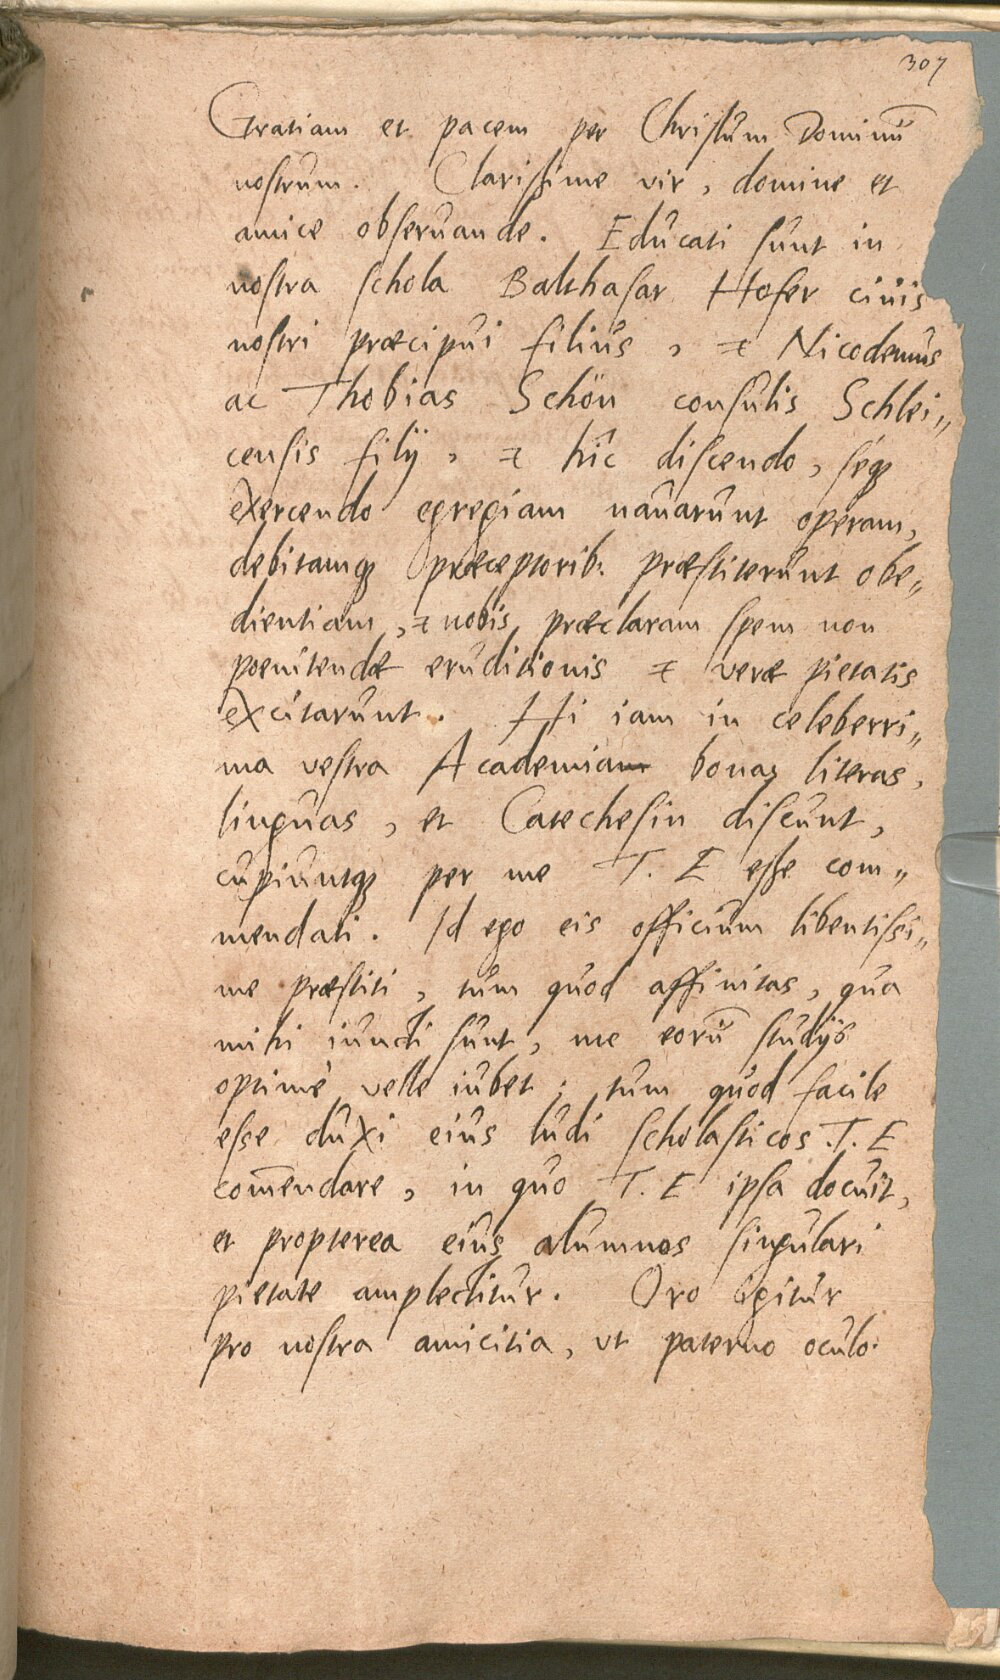 307
Gratiam et pacem per Christum Dominū
nostrum. Clarissime vir, domine et
amice obseruande. Educati sunt in
nostra schola Balthasar Hofer ciuis
nostri præcipui filius, & Nicodemus
ac Thobias Schön consulis Schlei„
censis filij, & hîc discendo, seq́ꝫ
exercendo egregiam nauarunt operam,
debitamqꝫ præceptorib. præstiterunt obe„
dientiam, & nobis præclaram spem non
poenitendæ eruditionis & veræ pietatis
excitarunt. Hi iam in celeberri„
ma vestra Academiam bonas literas,
linguas, et Catechesin discunt,
cupiuntqꝫ per me T. E esse com„
mendati. Id ego eis officium libentissi„
me præstiti, tum quod affinitas, qua
mihi iuncti sunt, me eorū studijs
optimè velle iubet; tum quod facile
esse duxi eius ludi scholasticos T. E
com̄endare, in quo T. E ipsa docuit,
et propterea eius alumnos singulari
pietate amplectitur. Oro igitur
pro nostra amicitia, vt paterno oculo.